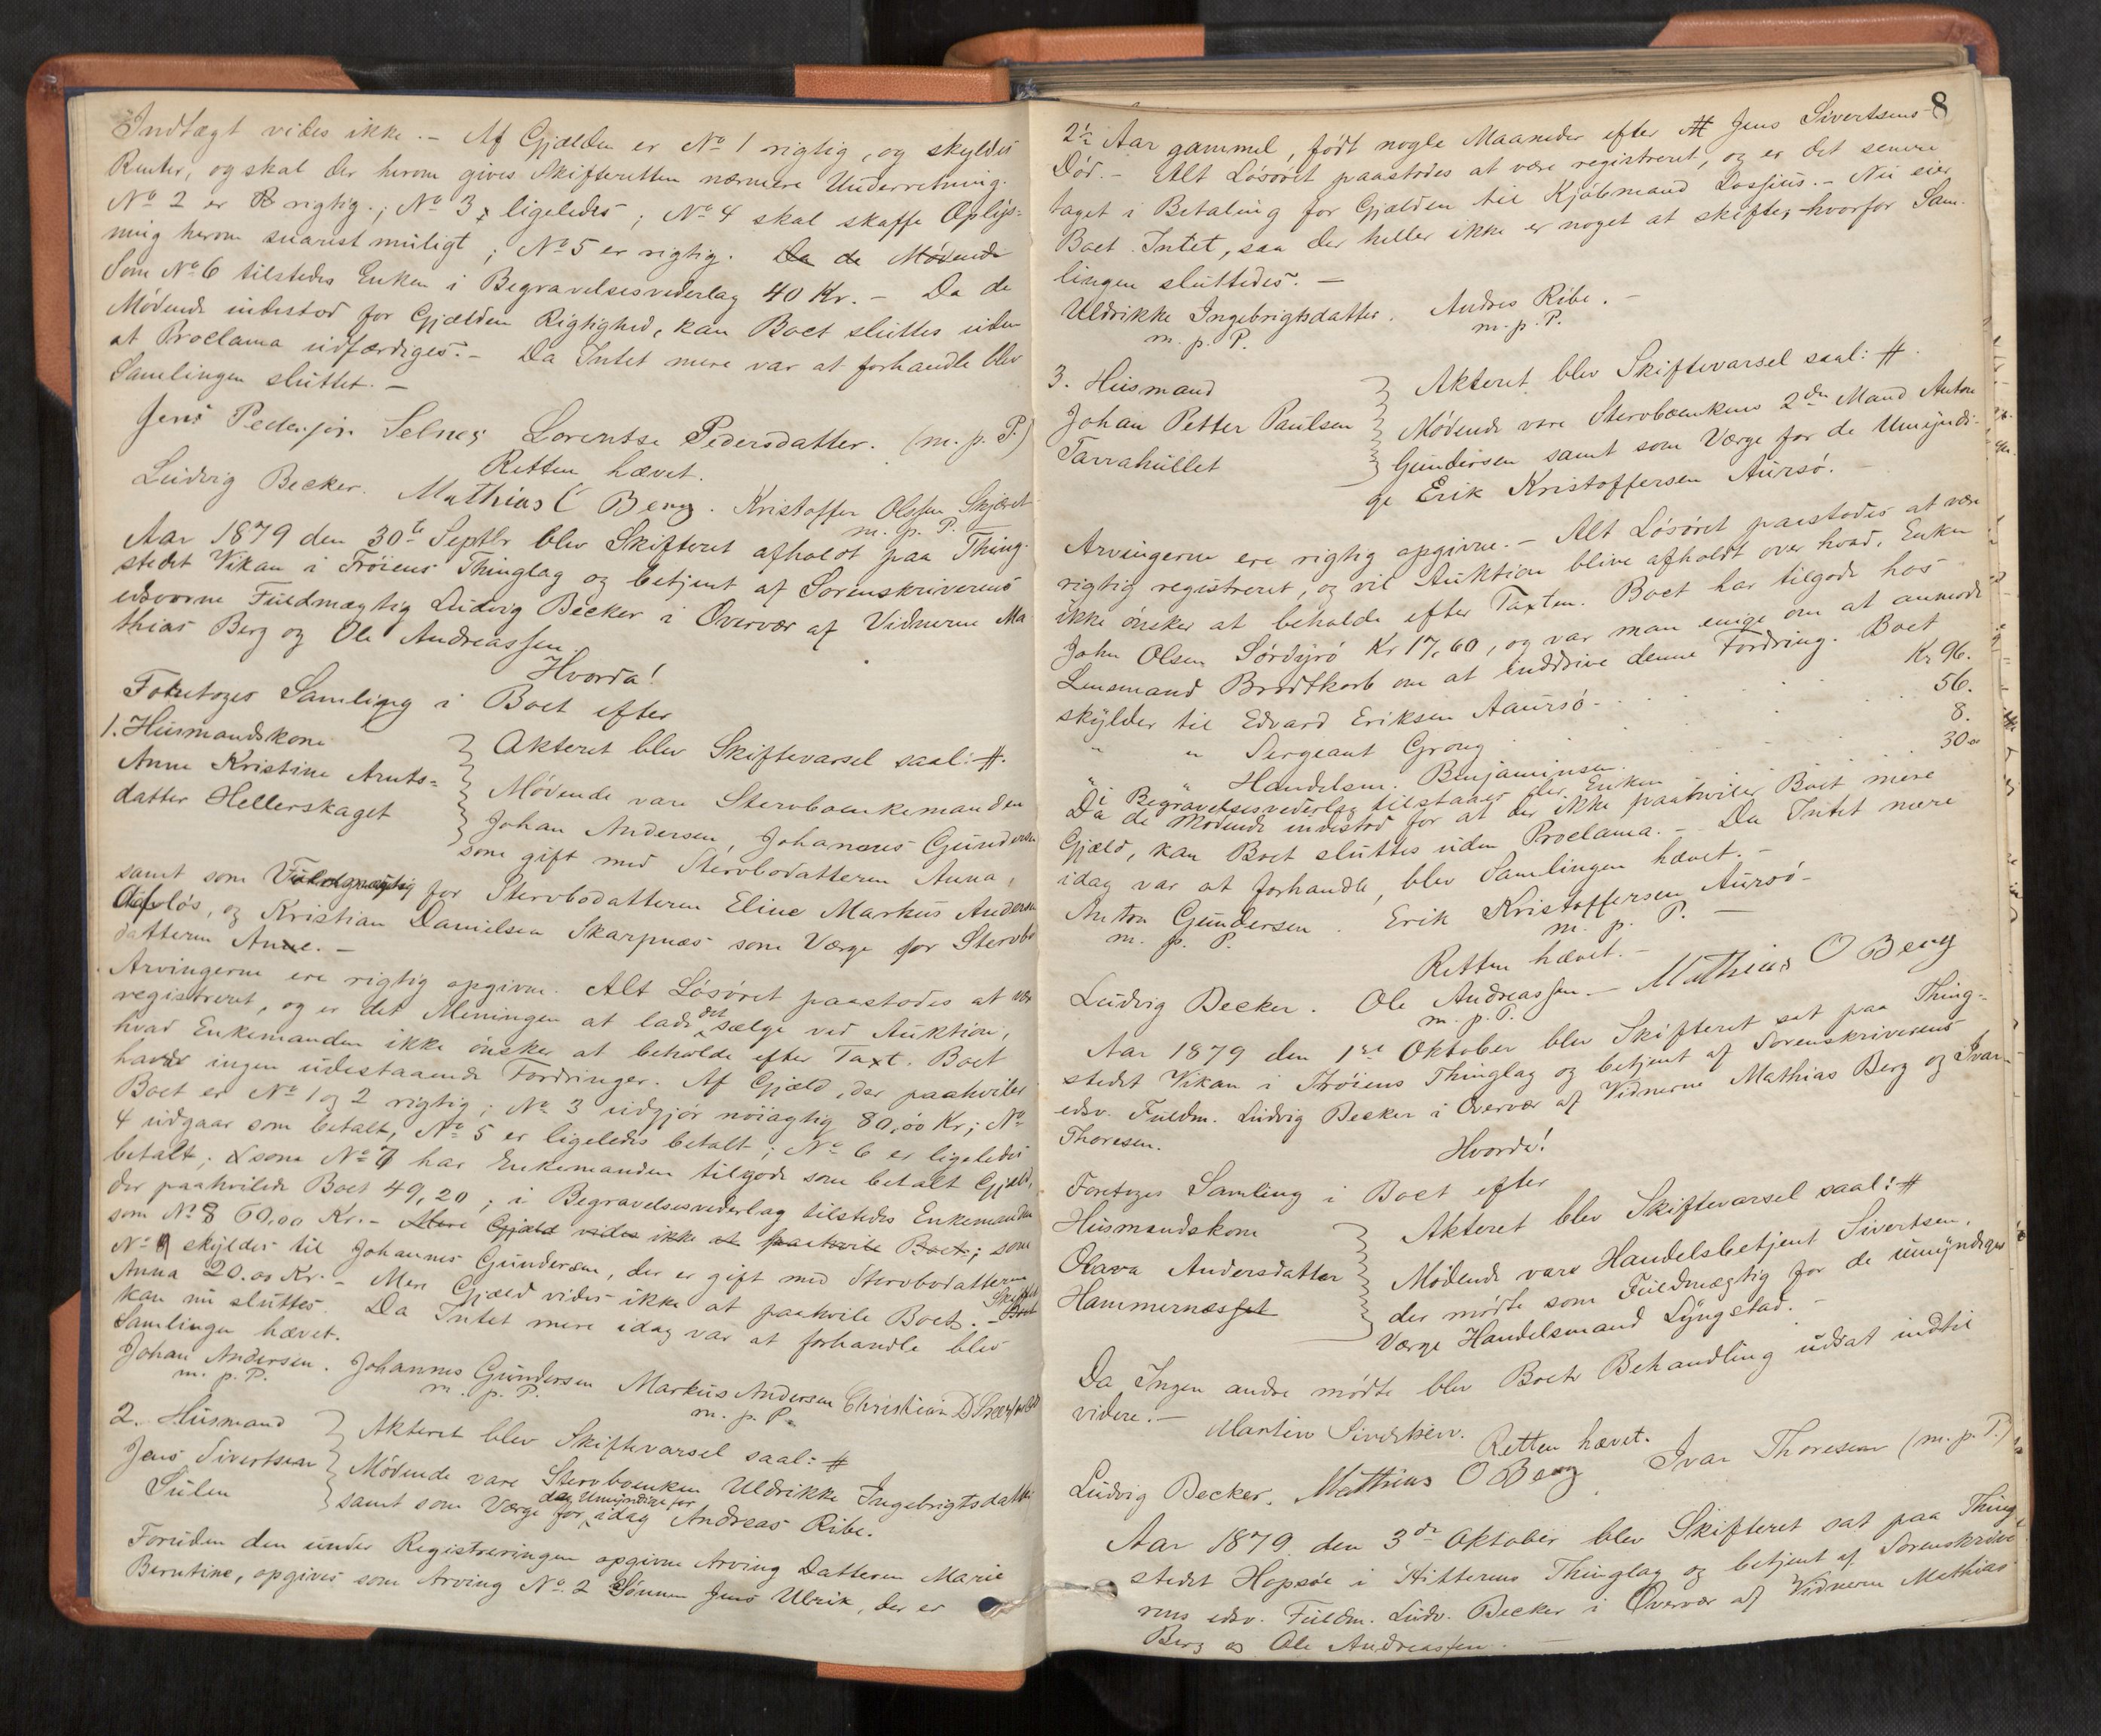 Indtægt vides ikke. - Af Gjælden er No 1 rigtig, og skyldes
Renter, og skal der herom gives Skifteretten nærmere Underretning.
No 2 er rigtig.; No 3, ligeledes; No 4 skal skaffe Oplys=
ning herom snarest muligt; No 5 er rigtig. Da de Mødende
Som No 6 tilstedes Enken i Begravelsesvederlag 40 Kr. - Da de
Mødende indestod for Gjælden Rigtighed, kan Boet sluttes uden
at Proclama udfærdiges. - Da Intet mere var at forhandle blev
Samlingen sluttet. -
Jens Pedersen Selnes Lorentse Pedersdatter. (m. p. P.)
Retten hævet.
Ludvig Becker. Mathias O Berg. Kristoffer Olssen Skjæret
m. p. P.
Aar 1879 den 30te Septbr blev Skifteret afholdt paa Thing-
stedet Vikan i Frøiens Thinglag og betjent af Sorenskriverens
edsvorne Fuldmægtig Ludvig Becker i Overvær af Vidnerne Ma
thias Berg og Ole Andreassen.
Hvorda!
Foretoges Samling i Boet efter
1. Husmandskone
Anne Kristine Arnts=
datter Hellerskaget
Akteret blev Skiftevarsel saal: #.
Mødende vare Stervboenkemanden
Johan Andersen, Johannes Gundersen
som gift med Stervbodatteren Anna,
samt som Fuldmægtig for Stervbodatteren Eline Markus Andersen
og Kristian Danielsen Skarpnæs som Værge for Stervbo
datteren Anne. -
Arvingerne ere rigtig opgivne. Alt Løsøret paastodes at være
registreret, og er det Meningen at lade det sælge ved Auktion,
hvad Enkemanden ikke ønsker at beholde efter Taxt. Boet
havde ingen udestaaende Fordringer. Af Gjæld, der paahviler
Boet er No 1 og 2 rigtig; No 3 udgjør nøiagtig 80,00 Kr; No
4 udgaar som betalt, No 5 er ligeledes betalt; No 6 er ligeledes
betalt; som No 7 har Enkemanden tilgode som betalt Gjæld,
der paahvilede Boet 49,20; i Begravelsesvederlag tilstedes Enkemanden
som No 8 60,00 Kr. - Mere Gjæld vides ikke at paahvile Boet; som
No 9 skyldes til Johannes Gundersen, der er gift med Stervbodatteren
Anna 20.00 Kr. - Mere Gjæld vides ikke at paahvile Boet. - Skiftet
kan nu sluttes. Da Intet mere idag var at forhandle blev
Samlingen hævet.
Johan Andersen. Johannes Gundersen Markus Andersen Christian D
m. p. P. m. p. P. m. p. P.
2. Husmand
Jens Sivertsen
Sulen
Akteret blev Skiftevarsel saal: #
Mødende vare Stervboenken Uldrikke Ingebrigtsdatter
samt som Værge for de Umyndige for idag Andreas Ribe.
Foruden den under Registreringen opgivne Arving Datteren Marie
Berntine, opgives som Arving No. 2 Sønnen Jens Ulrik, der er
8
2½ Aar gammel, født nogle Maaneder efter Jens Sivertsens
Død. - Alt Løsøret paastodes at være registreret, og er det senere
taget i Betaling for Gjælden til Kjøbmand Lossius. - Nu eier
Boet Intet, saa der heller ikke er noget at skifte, hvorfor Sam-
lingen sluttedes. -
Uldrikke Ingebrigtsdatter. Andres Ribe. -
m. p. P. m. p. P.
3. Husmand
Johan Petter Paulsen
Tarrahullet
Akteret blev Skiftevarsel saal: #.
Mødende vare Stervboenkens 2den Mand Anton
Gundersen samt som Værge for de Umyndi-
ge Erik Kristoffersen Aursø.
Arvingerne ere rigtig opgivne. - Alt Løsøret paastodes at være
rigtig registreret, og vil Auktion blive afholdt over hvad, Enken
ikke ønsker at beholde efter Taxten. Boet har tilgode hos
John Olsen Sørdyrø Kr 17,60, og var man enige om at anmode
Lensmand Brodtkorb om at inddrive denne Fordring. Boet
skylder til Edvard Eriksen Aaursø . . . Kr 96.
" " Sergeant Grong . . . 56.
" " Handelsm. Benjaminsen . . . 8.
I Begravelsesvederlag tilstaaes der Enken . . . 30 "
Da de Mødende indestod for at der ikke paahviler Boet mere
Gjæld, kan Boet sluttes uden Proclama. - Da Intet mere
idag var at forhandle, blev Samlingen hævet. -
Anton Gundersen. Erik Kristoffersen Aursø -
m. p. P. m. p. P. -
Retten hævet. -
Ludvig Becker. Ole Andreassen - Mathias O Berg
m. p. P.
Aar 1879 den 1ste Oktober blev Skifteret sat paa Thing-
stedet Vikan i Frøiens Thinglag og betjent af Sorenskriverens
edsv. Fuldm. Ludvig Becker i Overvær af Vidnerne Mathias Berg og Ivar
Thoresen.
Hvorda!
Foretoges Samling i Boet efter
Husmandskone
Olava Andersdatter
Hammernæsset
Akteret blev Skiftevarsel saal: #
Mødende vare Handelsbetjent Sivertsen,
der mødte som Fuldmægtig for de umyndiges
Værge Handelsmand Lyngstad. -
Da Ingen andre mødte blev Boets Behandling udsat indtil
videre. -
Martin Sivertsen.
Retten hævet.
Ludvig Becker. Mathias O Berg. Ivar Thoresen (m. p. P.)
Aar 1879 den 3de Oktober blev Skifteret sat paa Thing
stedet Hopsøe i Hitterens Thinglag og betjent af Sorenskrive
rens edsv. Fuldm. Ludv. Becker i Overvær af Vidnerne Mathias
Berg og Ole Andreassen. -